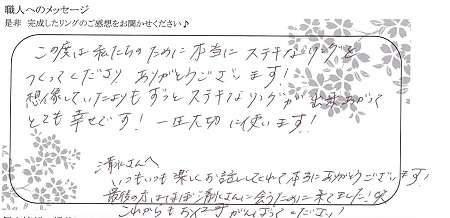 職人へのメッセージ
是非 完成したリングのご感想をお聞かせください♪
この度は私たちのために本当にステキなリングを
つくってくださり ありがとうございます!
想像していたよりも ずっとステキなリングが出来あがって
とても幸せです! 一生大切に使います!
清水さんへ
いつもいつも楽しくお話してくれて本当にありがとうございます!
最後の方はほぼ清水さんに会うために来てました!笑
これからも がんばってください!